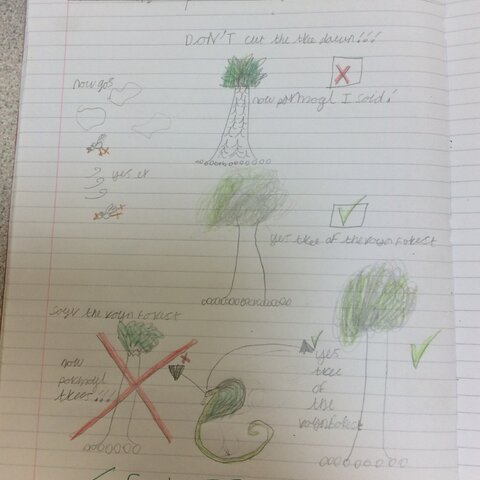 DON'T cut the tree down!!!
now gas
now parmoyl I said!
yes
yes tree of the royn forest
save the royn forest
now
parmoyl
trees!!!
yes
tree
of
the
roynforest